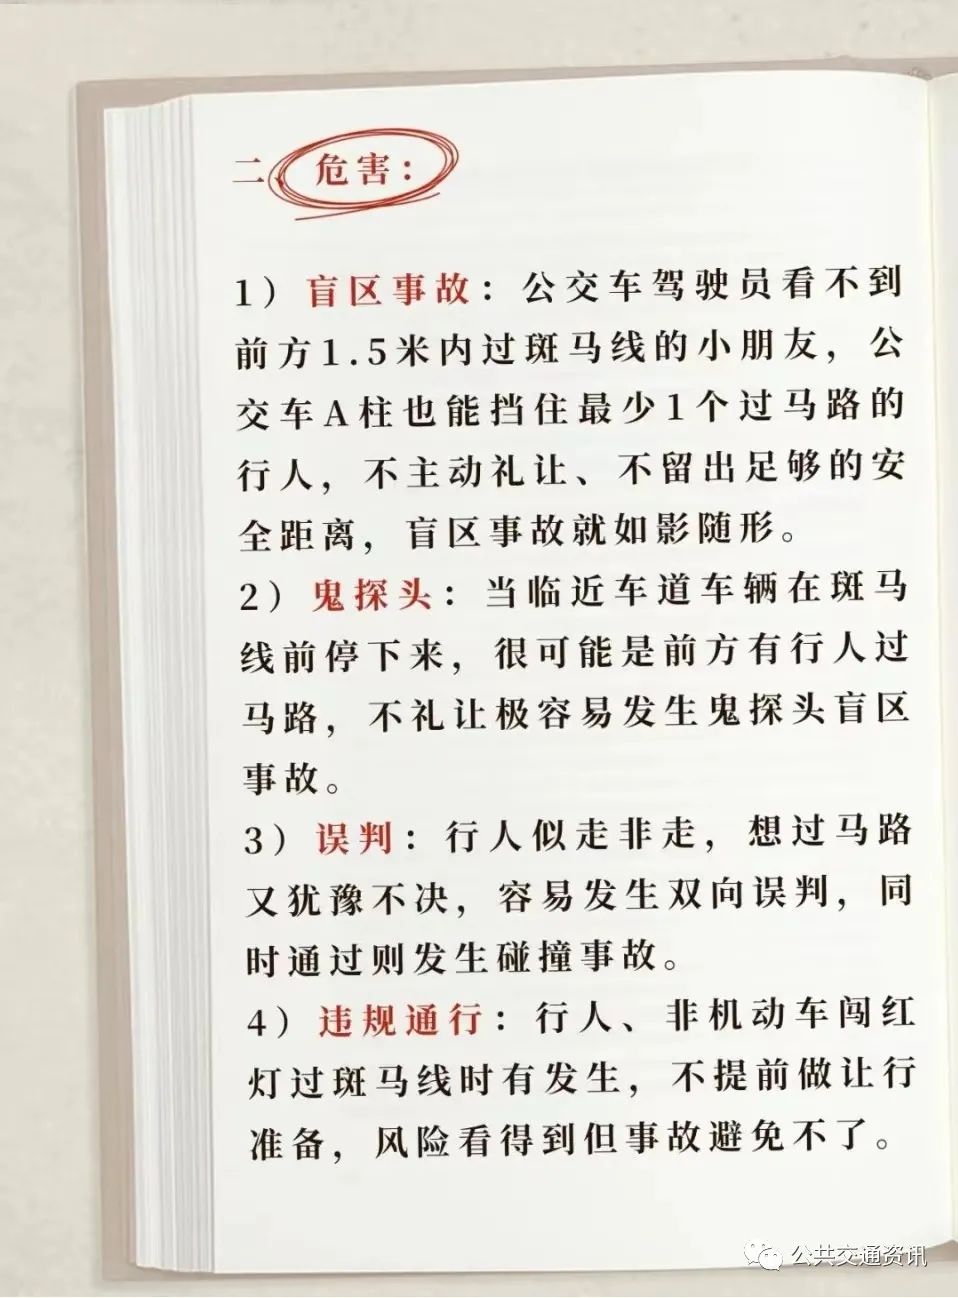 二、危害：
1）盲区事故：公交车驾驶员看不到
前方1.5米内过斑马线的小朋友，公
交车A柱也能挡住最少1个过马路的
行人，不主动礼让、不留出足够的安
全距离，盲区事故就如影随形。
2）鬼探头：当临近车道车辆在斑马
线前停下来，很可能是前方有行人过
马路，不礼让极容易发生鬼探头盲区
事故。
3）误判：行人似走非走，想过马路
又犹豫不决，容易发生双向误判，同
时通过则发生碰撞事故。
4）违规通行：行人、非机动车闯红
灯过斑马线时有发生，不提前做让行
准备，风险看得到但事故避免不了。
公共交通资讯